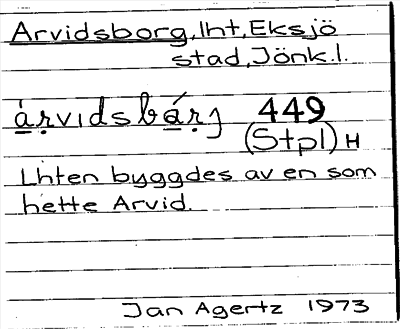 Arvidsborg, lht, Eksjö
stad, Jönk.l.
449
(Stpl) H
Lhten byggdes av en som
hette Arvid.
Jan Agertz 1973